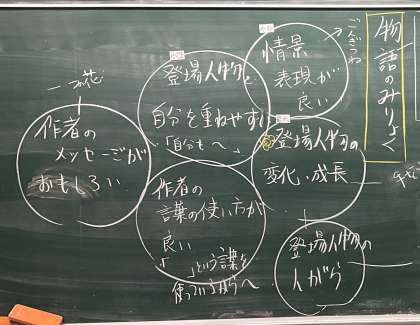 物語のみりょく
ごんぎつね
情景
表現が
良い
登場人物と
自分を重ねやすい
「自分も〜」
一つの花
作者の
メッセージが
おもしろい
登場人物の
変化・成長
作者の
言葉の使い方が
良い
「　　」という言葉を
使っているから〜
登場人物の
人がら